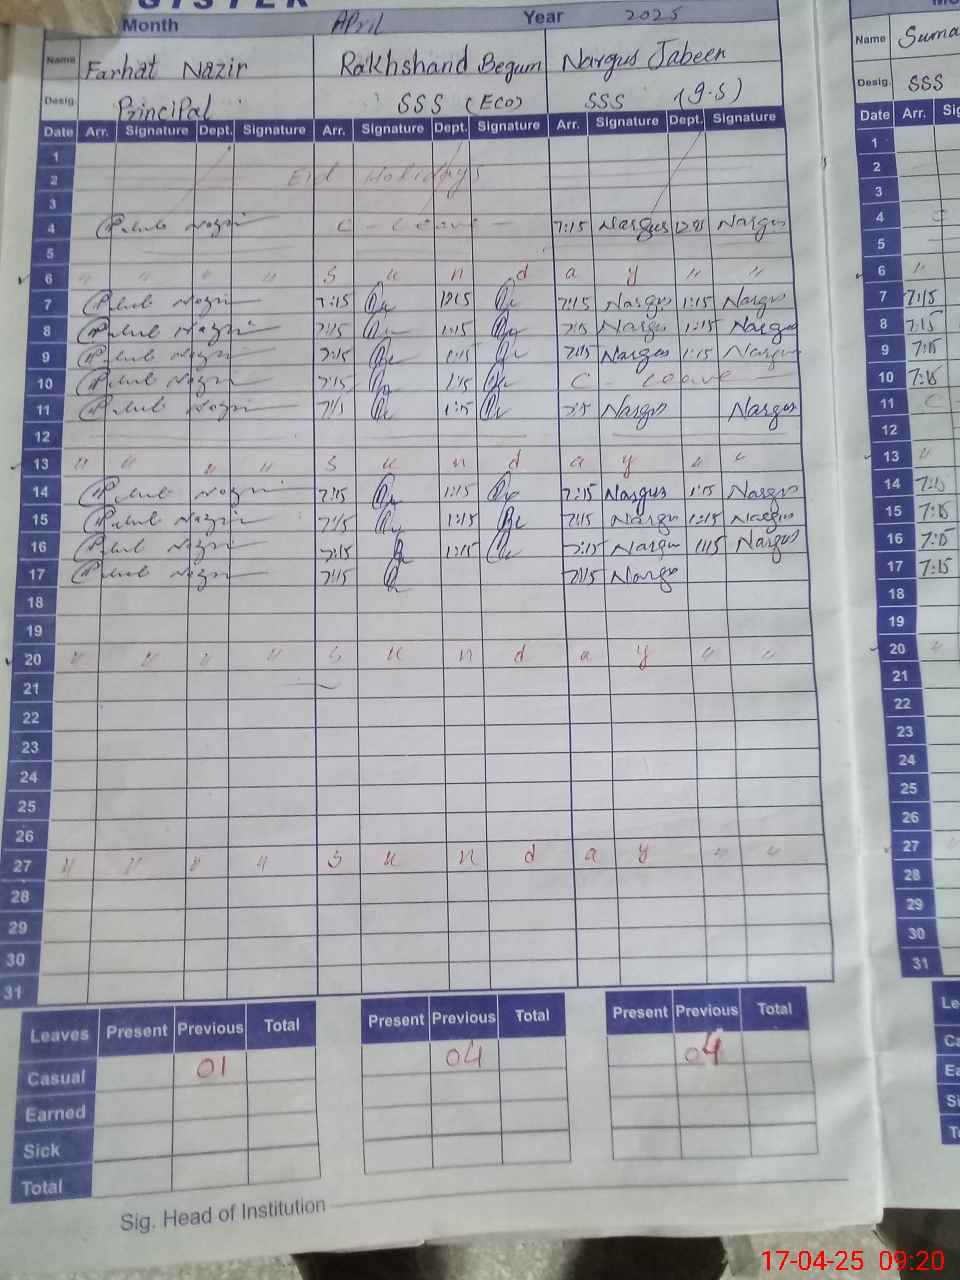 Month April Year 2025
Name Farhat Nazir Rakhshand Begum Nargus Jabeen Name
Desig. Principal SSS (Eco) SSS (g.s) SSS
Date Arr. Signature Dept. Signature Arr. Signature Dept. Signature Arr. Signature Dept. Signature Date Arr.
1 1
2 Eid Holidays 2
3 3
4 C - Leave - 7:15 Nargus Nargus 4 C
5 5
6 " " " " S u n d a y " " 6 "
7 7:15 7:15 Nargus 1:15 Nargus 7 7:15
8 7:15 1:15 7:15 Nargus 1:15 Nargus 8 7:15
9 7:15 1:15 7:15 Nargus 1:15 Nargus 9 7:15
10 7:15 1:15 C - Leave 10 7:15
11 1:15 Nargus Nargus 11 C
12 12
13 " " " " S u n d a y " " 13 "
14 7:15 1:15 7:15 Nargus 1:15 Nargus 14 7:15
15 7:15 1:15 7:15 Nargus 1:15 Nargus 15 7:15
16 7:15 1:15 7:15 Nargus 1:15 Nargus 16 7:15
17 7:15 7:15 Nargus 17 7:15
18 18
19 19
20 " " " " S u n d a y " " 20 "
21 21
22 22
23 23
24 24
25 25
26 26
27 " " " " S u n d a y " " 27
28 28
29 29
30 30
31 31
Leaves Present Previous Total Present Previous Total Present Previous Total
Casual 01 04 04
Earned
Sick
Total
Sig. Head of Institution
17-04-25 09:20